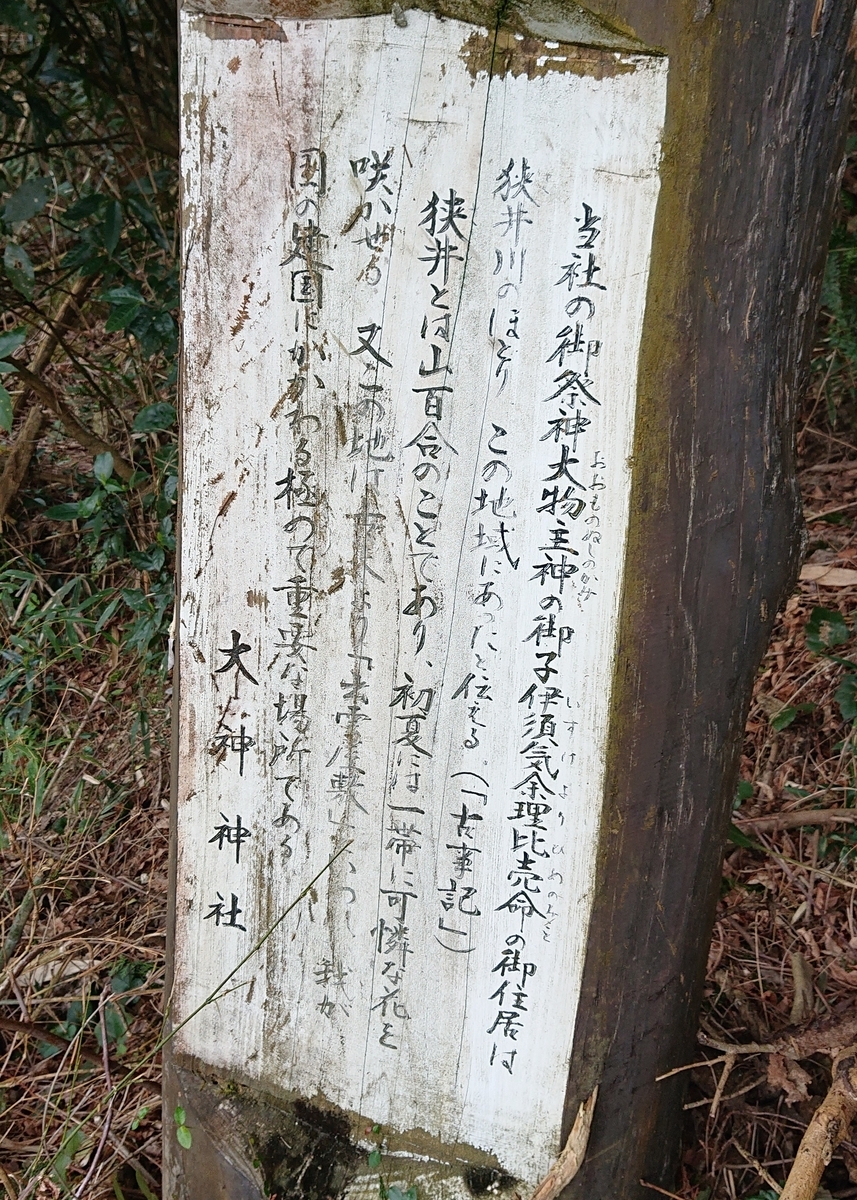 当社の御祭神大物主神の御子伊須気余理比売命の御住居は
おおものぬしのかみ
いすけよりひめのみこと
狭井川のほとり、この地域にあったと伝える(「古事記」)
狭井とは山百合のことであり、初夏には一帯に可憐な花を
咲かせる 又この地は古来より「出雲屋敷」といつ 我が
国の建国にかかわる極めて重要な場所である
大神神社